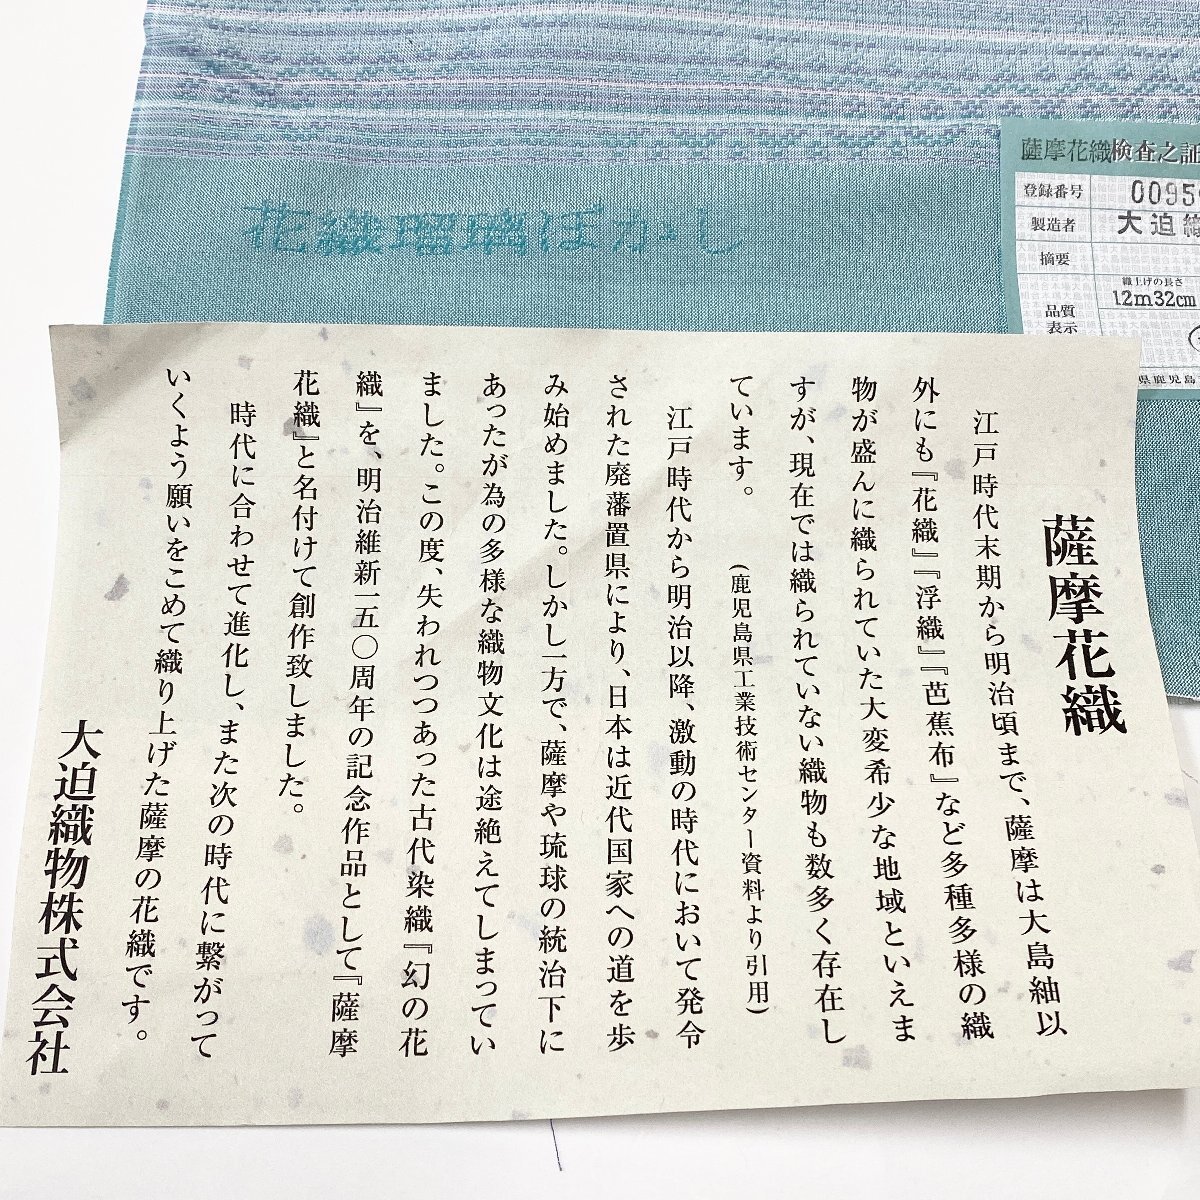 花織瑠璃ぼかし
薩摩花織検査之証
登録番号 0095
製造者 大迫織
摘要
品質
表示
織上げの長さ
12m32cm
県鹿児島
薩摩花織
江戸時代末期から明治頃まで、薩摩は大島紬以
外にも『花織』『浮織』『芭蕉布』など多種多様の織
物が盛んに織られていた大変希少な地域といえま
すが、現在では織られていない織物も数多く存在し
ています。
(鹿児島県工業技術センター資料より引用)
江戸時代から明治以降、激動の時代において発令
された廃藩置県により、日本は近代国家への道を歩
み始めました。しかし一方で、薩摩や琉球の統治下に
あったが為の多様な織物文化は途絶えてしまってい
ました。この度、失われつつあった古代染織『幻の花
織』を、明治維新一五〇周年の記念作品として『薩摩
花織』と名付けて創作致しました。
時代に合わせて進化し、また次の時代に繋がって
いくよう願いをこめて織り上げた薩摩の花織です。
大迫織物株式会社